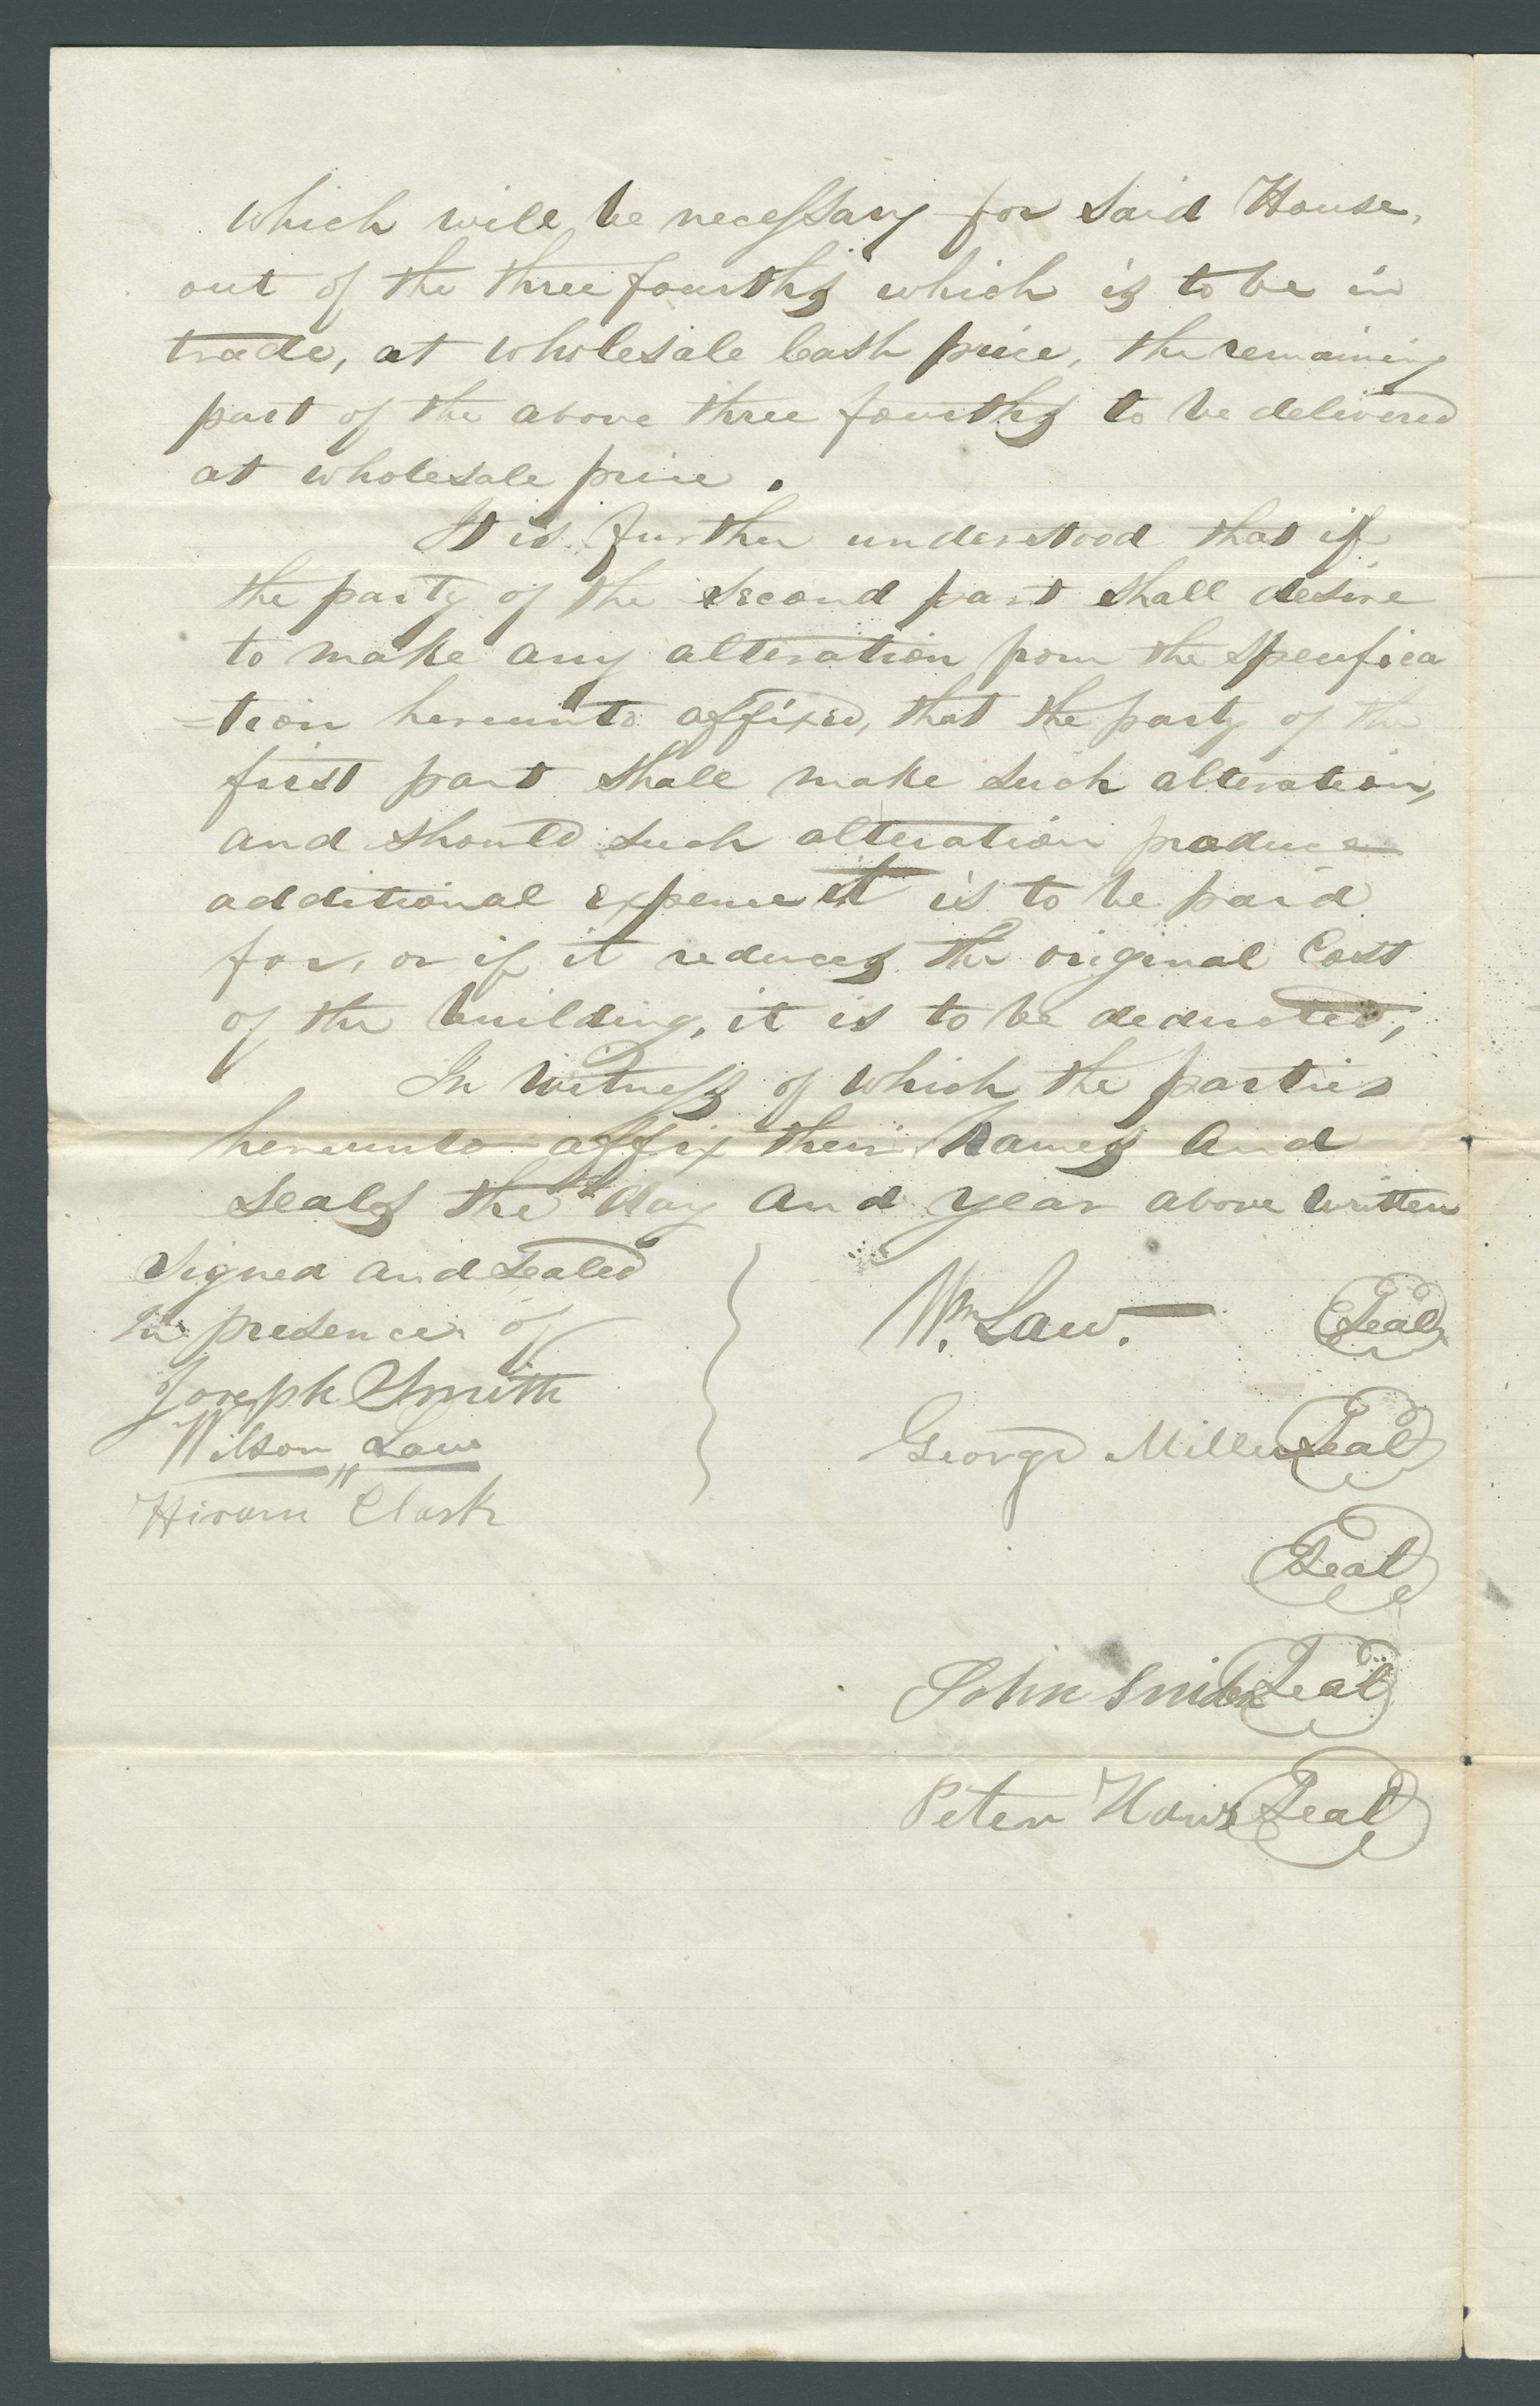 which will be necessary for said House,
out of the three fourths which is to be in
trade, at wholesale Cash price, the remaining
part of the above three fourths to be delivered
at wholesale price.
It is further understood that if
the party of the second part shall desire
to make any alteration from the specifica
=tion hereunto affixed, that the party of the
first part shall make such alteration,
and should such alteration produce
additional expence it is to be paid
for, or if it reduces the original Cost
of the building, it is to be deducted,
In witness of which the parties
hereunto affix their names and
seals the day and year above written
Signed and Sealed
in presence of
Joseph Smith
Wilson Law
Hiram Clark
Wm. Law. Seal
George Miller Seal
Seal
John Snider Seal
Peter Haws Seal